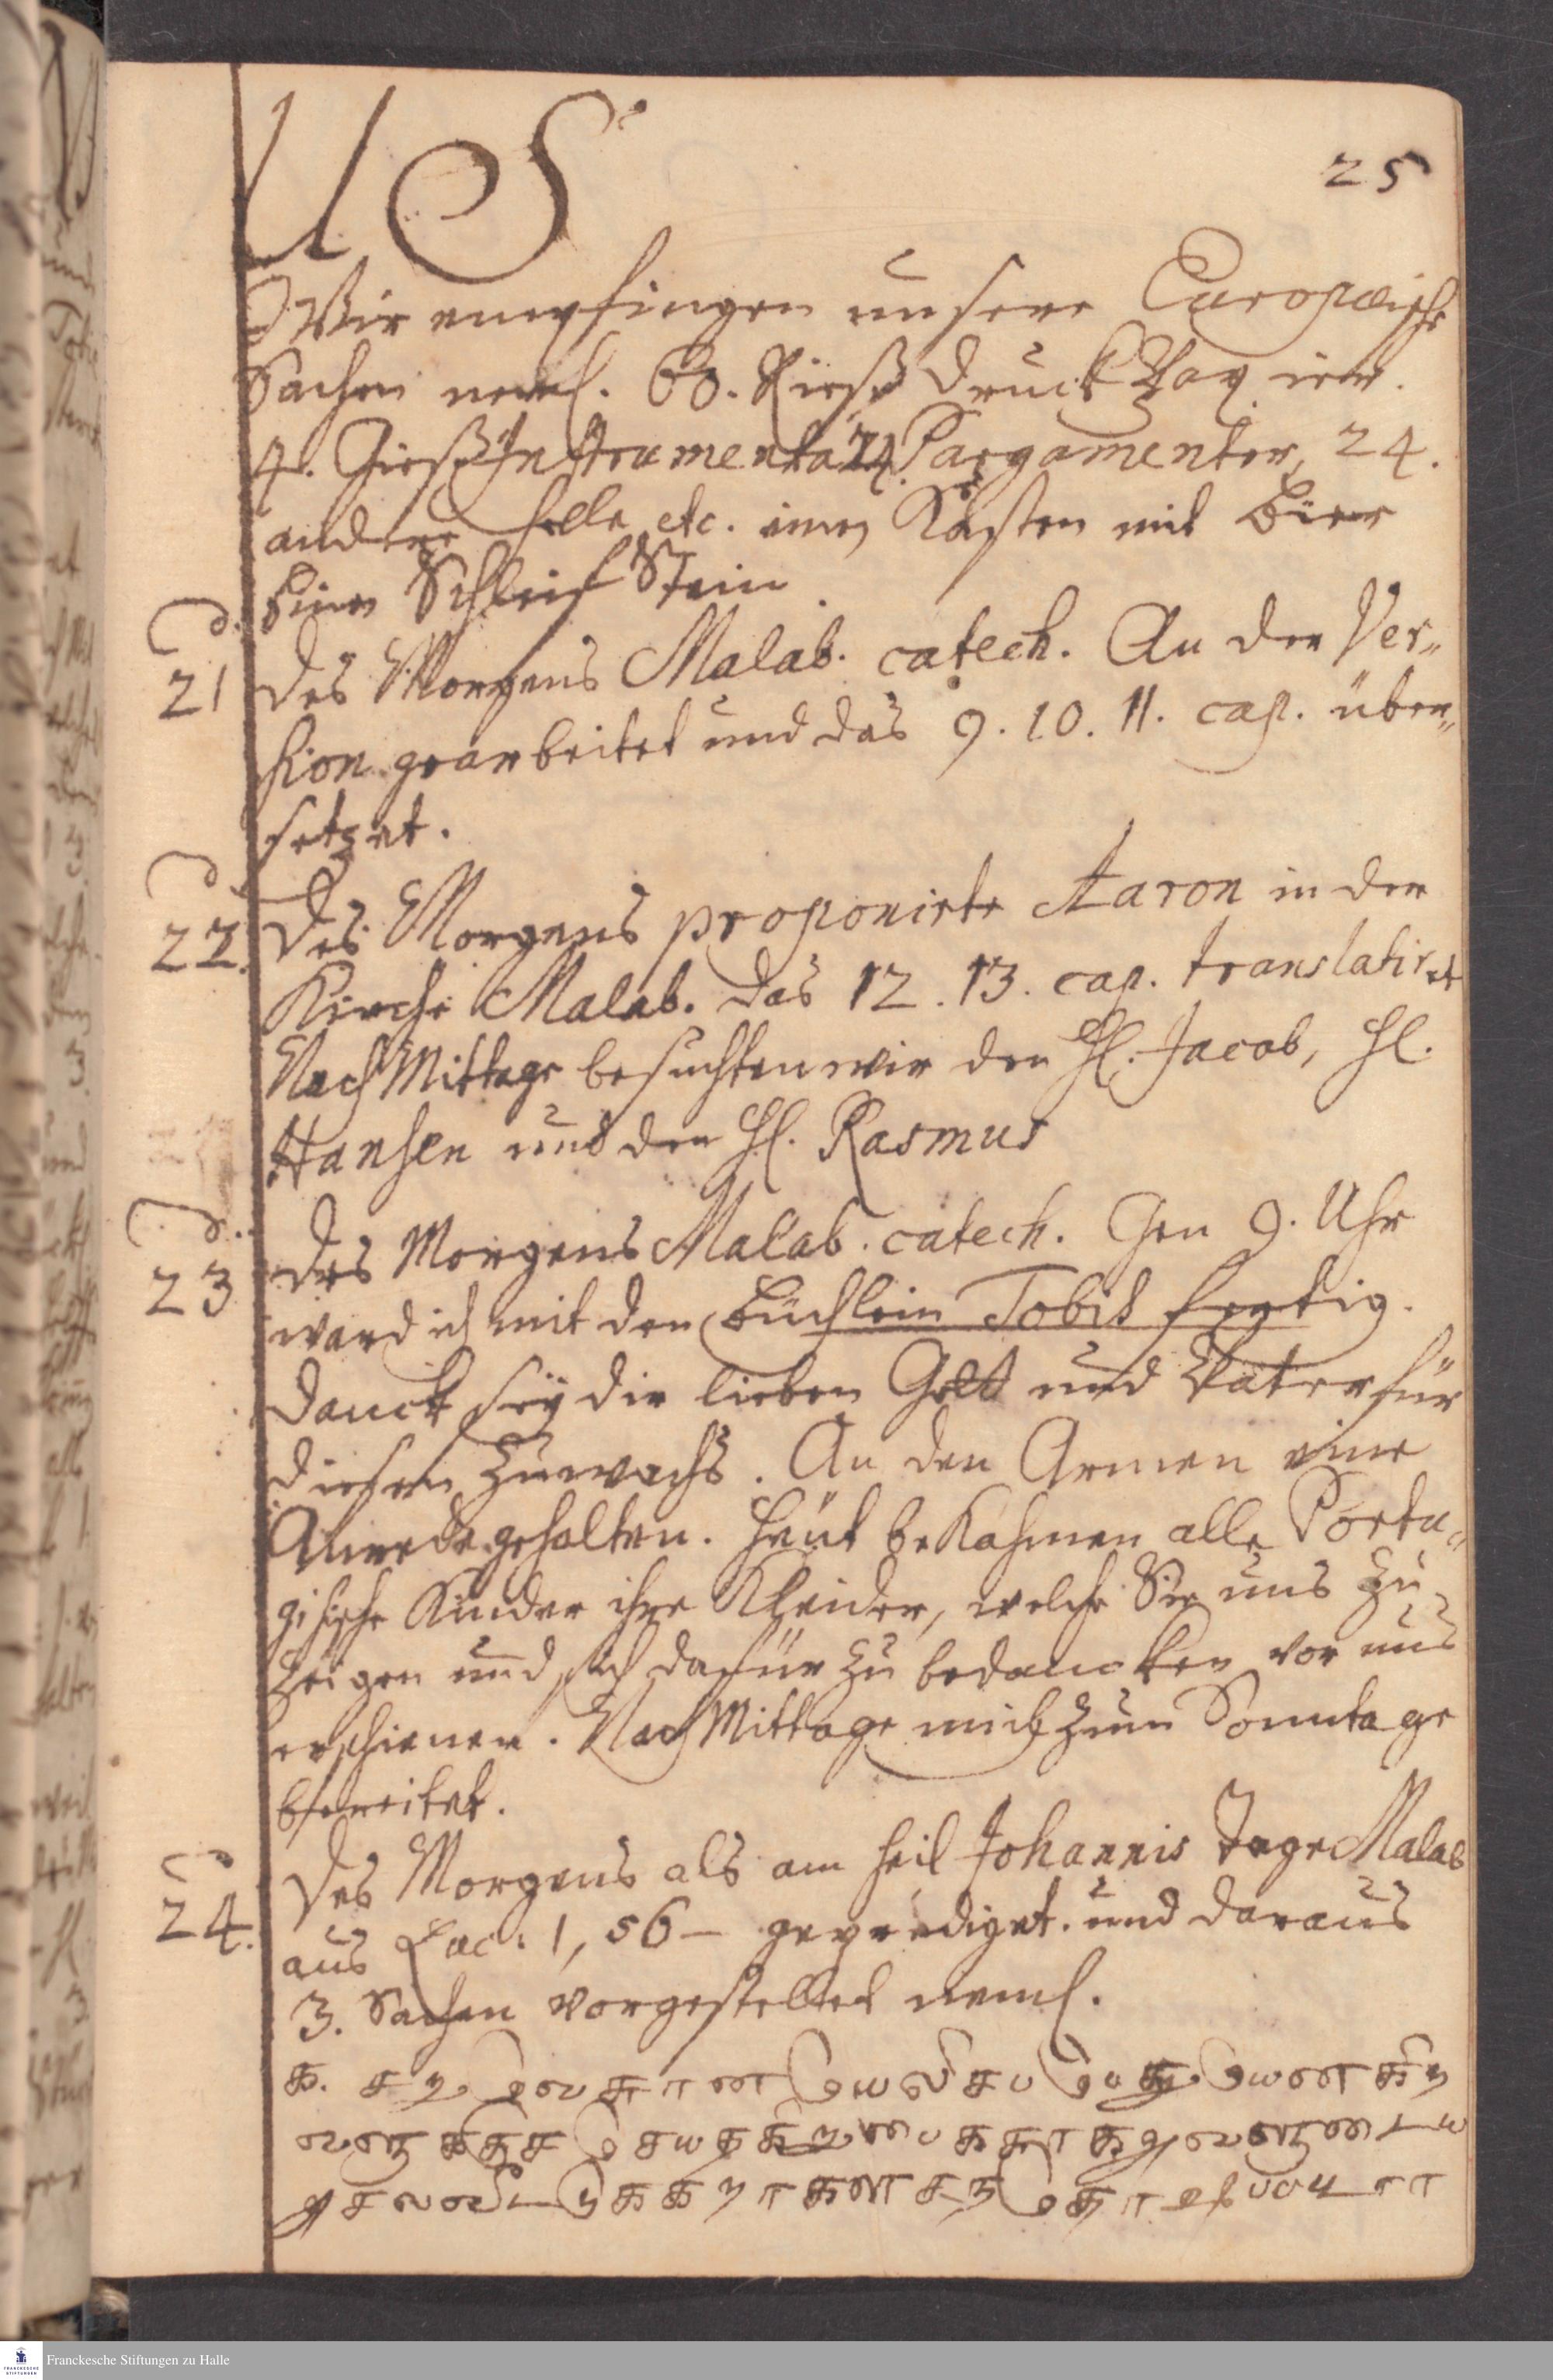 25
Wir empfingen unsere Europæische
Sachen neml. 60. Rieß Druck Papier.
4. Gieß Instrumenta, 24 Pargamenter, 24.
andere felle etc. einen Kasten mit Bier
Einen Schleif Stein.
d. 21 Des Morgens Malab. catech. An der Ver-
sion gearbeitet und das 9. 10. 11. cap. über-
setzet.
d. 22. Des Morgens proponirte Aaron in der
Kirche Malab. das 12. 13. cap. translatiret
Nach Mittage besuchten wir den H. Jacob, H.
Hansen und den H. Rasmus
d. 23 Des Morgens Malab. catech. Gen 9. Uhr
ward ich mit den Büchlein Tobiä fertig.
Danck sey dir lieber Gott und Vater für
diesen Zuwachs. An den Armen eine
Anrede gehalten. Heut bekahmen alle Portu-
gisische Kinder ihre Kleider, welche Sie uns zu
zeigen und sich dafür zu bedancken vor uns
erschienen. Nach Mittage mich zum Sonntage
bereitet.
d. 24. Des Morgens als am heil Johannis Tage Malab
aus Luc: 1, 56 – geprediget. und daraus
3. Sachen vorgestellet neml.
Franckesche Stiftungen zu Halle